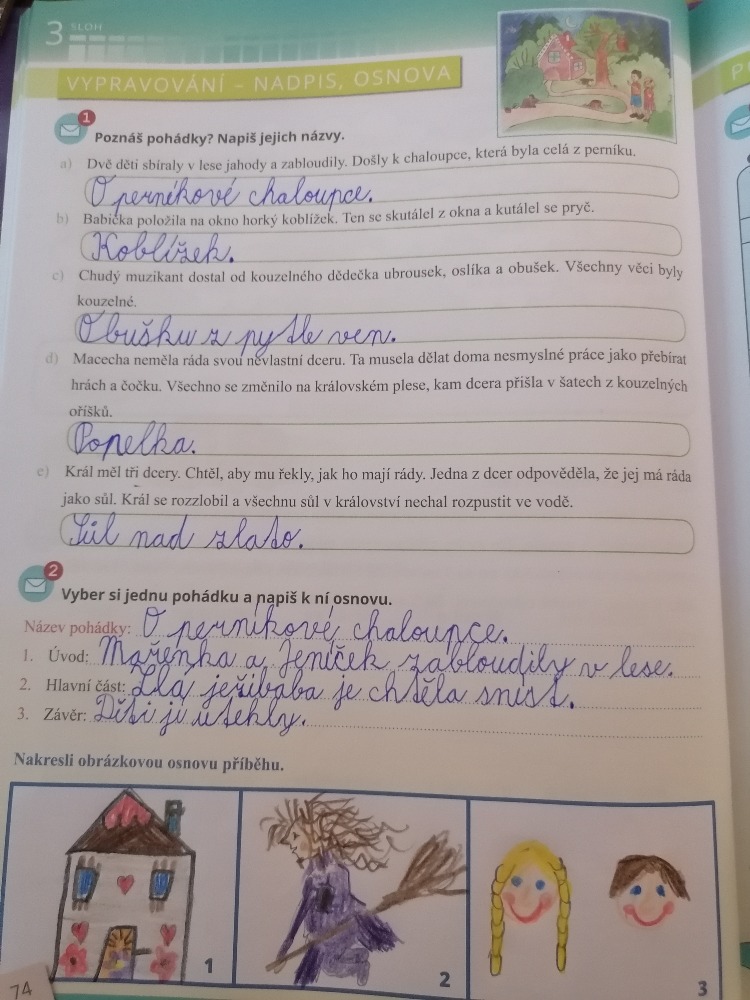 3 SLOH
VYPRAVOVÁNÍ – NADPIS, OSNOVA
1
Poznáš pohádky? Napiš jejich názvy.
a) Dvě děti sbíraly v lese jahody a zabloudily. Došly k chaloupce, která byla celá z perníku.
O perníkové chaloupce.
b) Babička položila na okno horký koblížek. Ten se skutálel z okna a kutálel se pryč.
Koblížek.
c) Chudý muzikant dostal od kouzelného dědečka ubrousek, oslíka a obušek. Všechny věci byly
kouzelné.
Obušku z pytle ven.
d) Macecha neměla ráda svou nevlastní dceru. Ta musela dělat doma nesmyslné práce jako přebírat
hrách a čočku. Všechno se změnilo na královském plese, kam dcera přišla v šatech z kouzelných
oříšků.
Popelka.
e) Král měl tři dcery. Chtěl, aby mu řekly, jak ho mají rády. Jedna z dcer odpověděla, že jej má ráda
jako sůl. Král se rozzlobil a všechnu sůl v království nechal rozpustit ve vodě.
Sůl nad zlato.
2
Vyber si jednu pohádku a napiš k ní osnovu.
Název pohádky: O perníkové chaloupce.
1. Úvod: Mařenka a Jeníček zabloudily v lese.
2. Hlavní část: Zlá ježibaba je chtěla sníst.
3. Závěr: Děti jí utekly.
Nakresli obrázkovou osnovu příběhu.
1
2
3
74